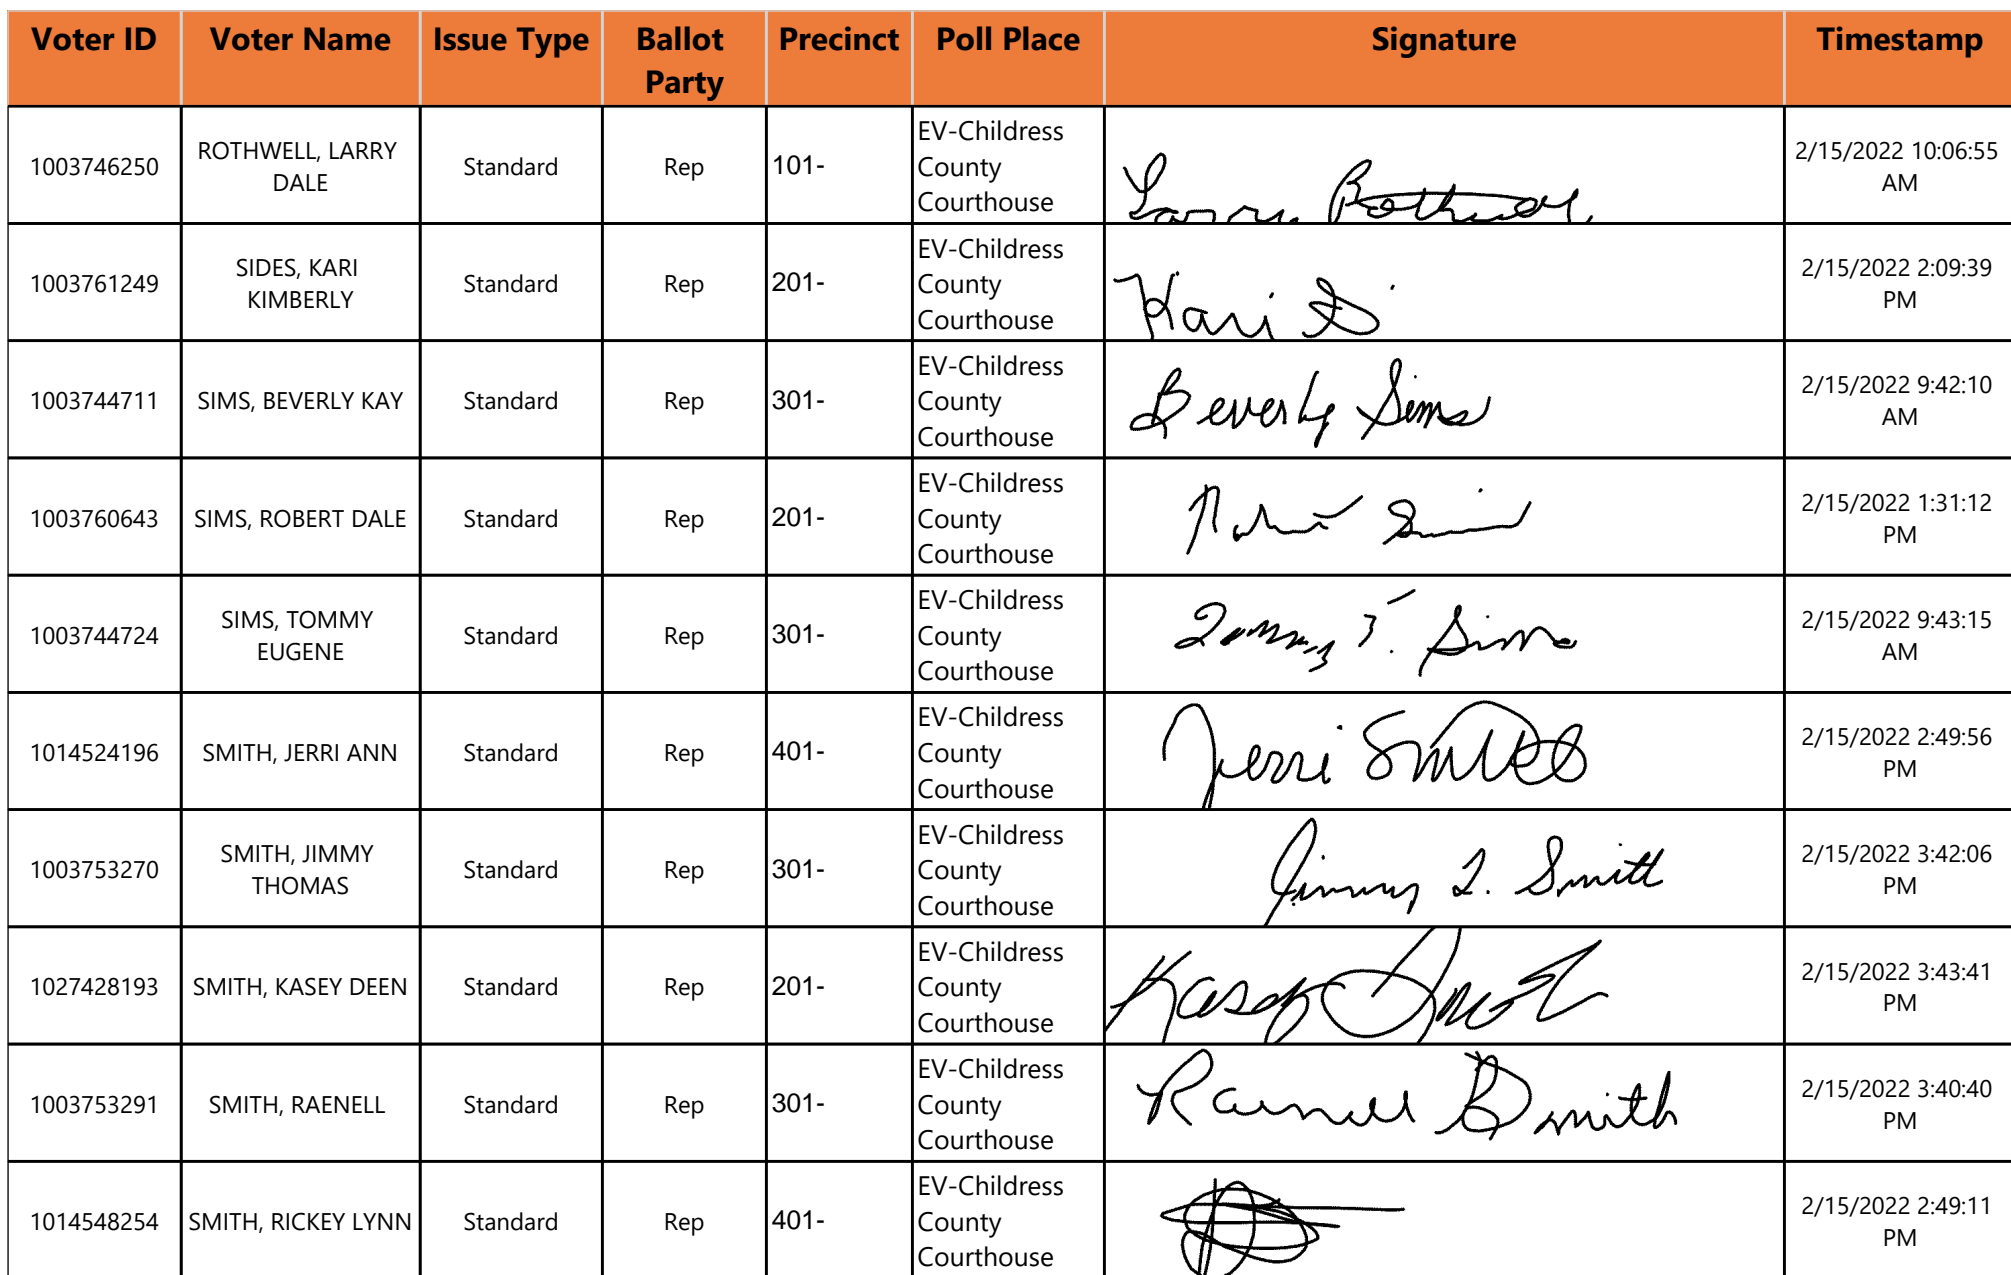 Voter ID Voter Name Issue Type Ballot Party Precinct Poll Place Signature Timestamp
1003746250 ROTHWELL, LARRY DALE Standard Rep 101- EV-Childress County Courthouse Larry Rothwell 2/15/2022 10:06:55 AM
1003761249 SIDES, KARI KIMBERLY Standard Rep 201- EV-Childress County Courthouse Kari 2/15/2022 2:09:39 PM
1003744711 SIMS, BEVERLY KAY Standard Rep 301- EV-Childress County Courthouse Beverly Sims 2/15/2022 9:42:10 AM
1003760643 SIMS, ROBERT DALE Standard Rep 201- EV-Childress County Courthouse 2/15/2022 1:31:12 PM
1003744724 SIMS, TOMMY EUGENE Standard Rep 301- EV-Childress County Courthouse Tommy Sims 2/15/2022 9:43:15 AM
1014524196 SMITH, JERRI ANN Standard Rep 401- EV-Childress County Courthouse Jerri Smith 2/15/2022 2:49:56 PM
1003753270 SMITH, JIMMY THOMAS Standard Rep 301- EV-Childress County Courthouse Jimmy T. Smith 2/15/2022 3:42:06 PM
1027428193 SMITH, KASEY DEEN Standard Rep 201- EV-Childress County Courthouse Kasey Smith 2/15/2022 3:43:41 PM
1003753291 SMITH, RAENELL Standard Rep 301- EV-Childress County Courthouse Raenell Smith 2/15/2022 3:40:40 PM
1014548254 SMITH, RICKEY LYNN Standard Rep 401- EV-Childress County Courthouse 2/15/2022 2:49:11 PM